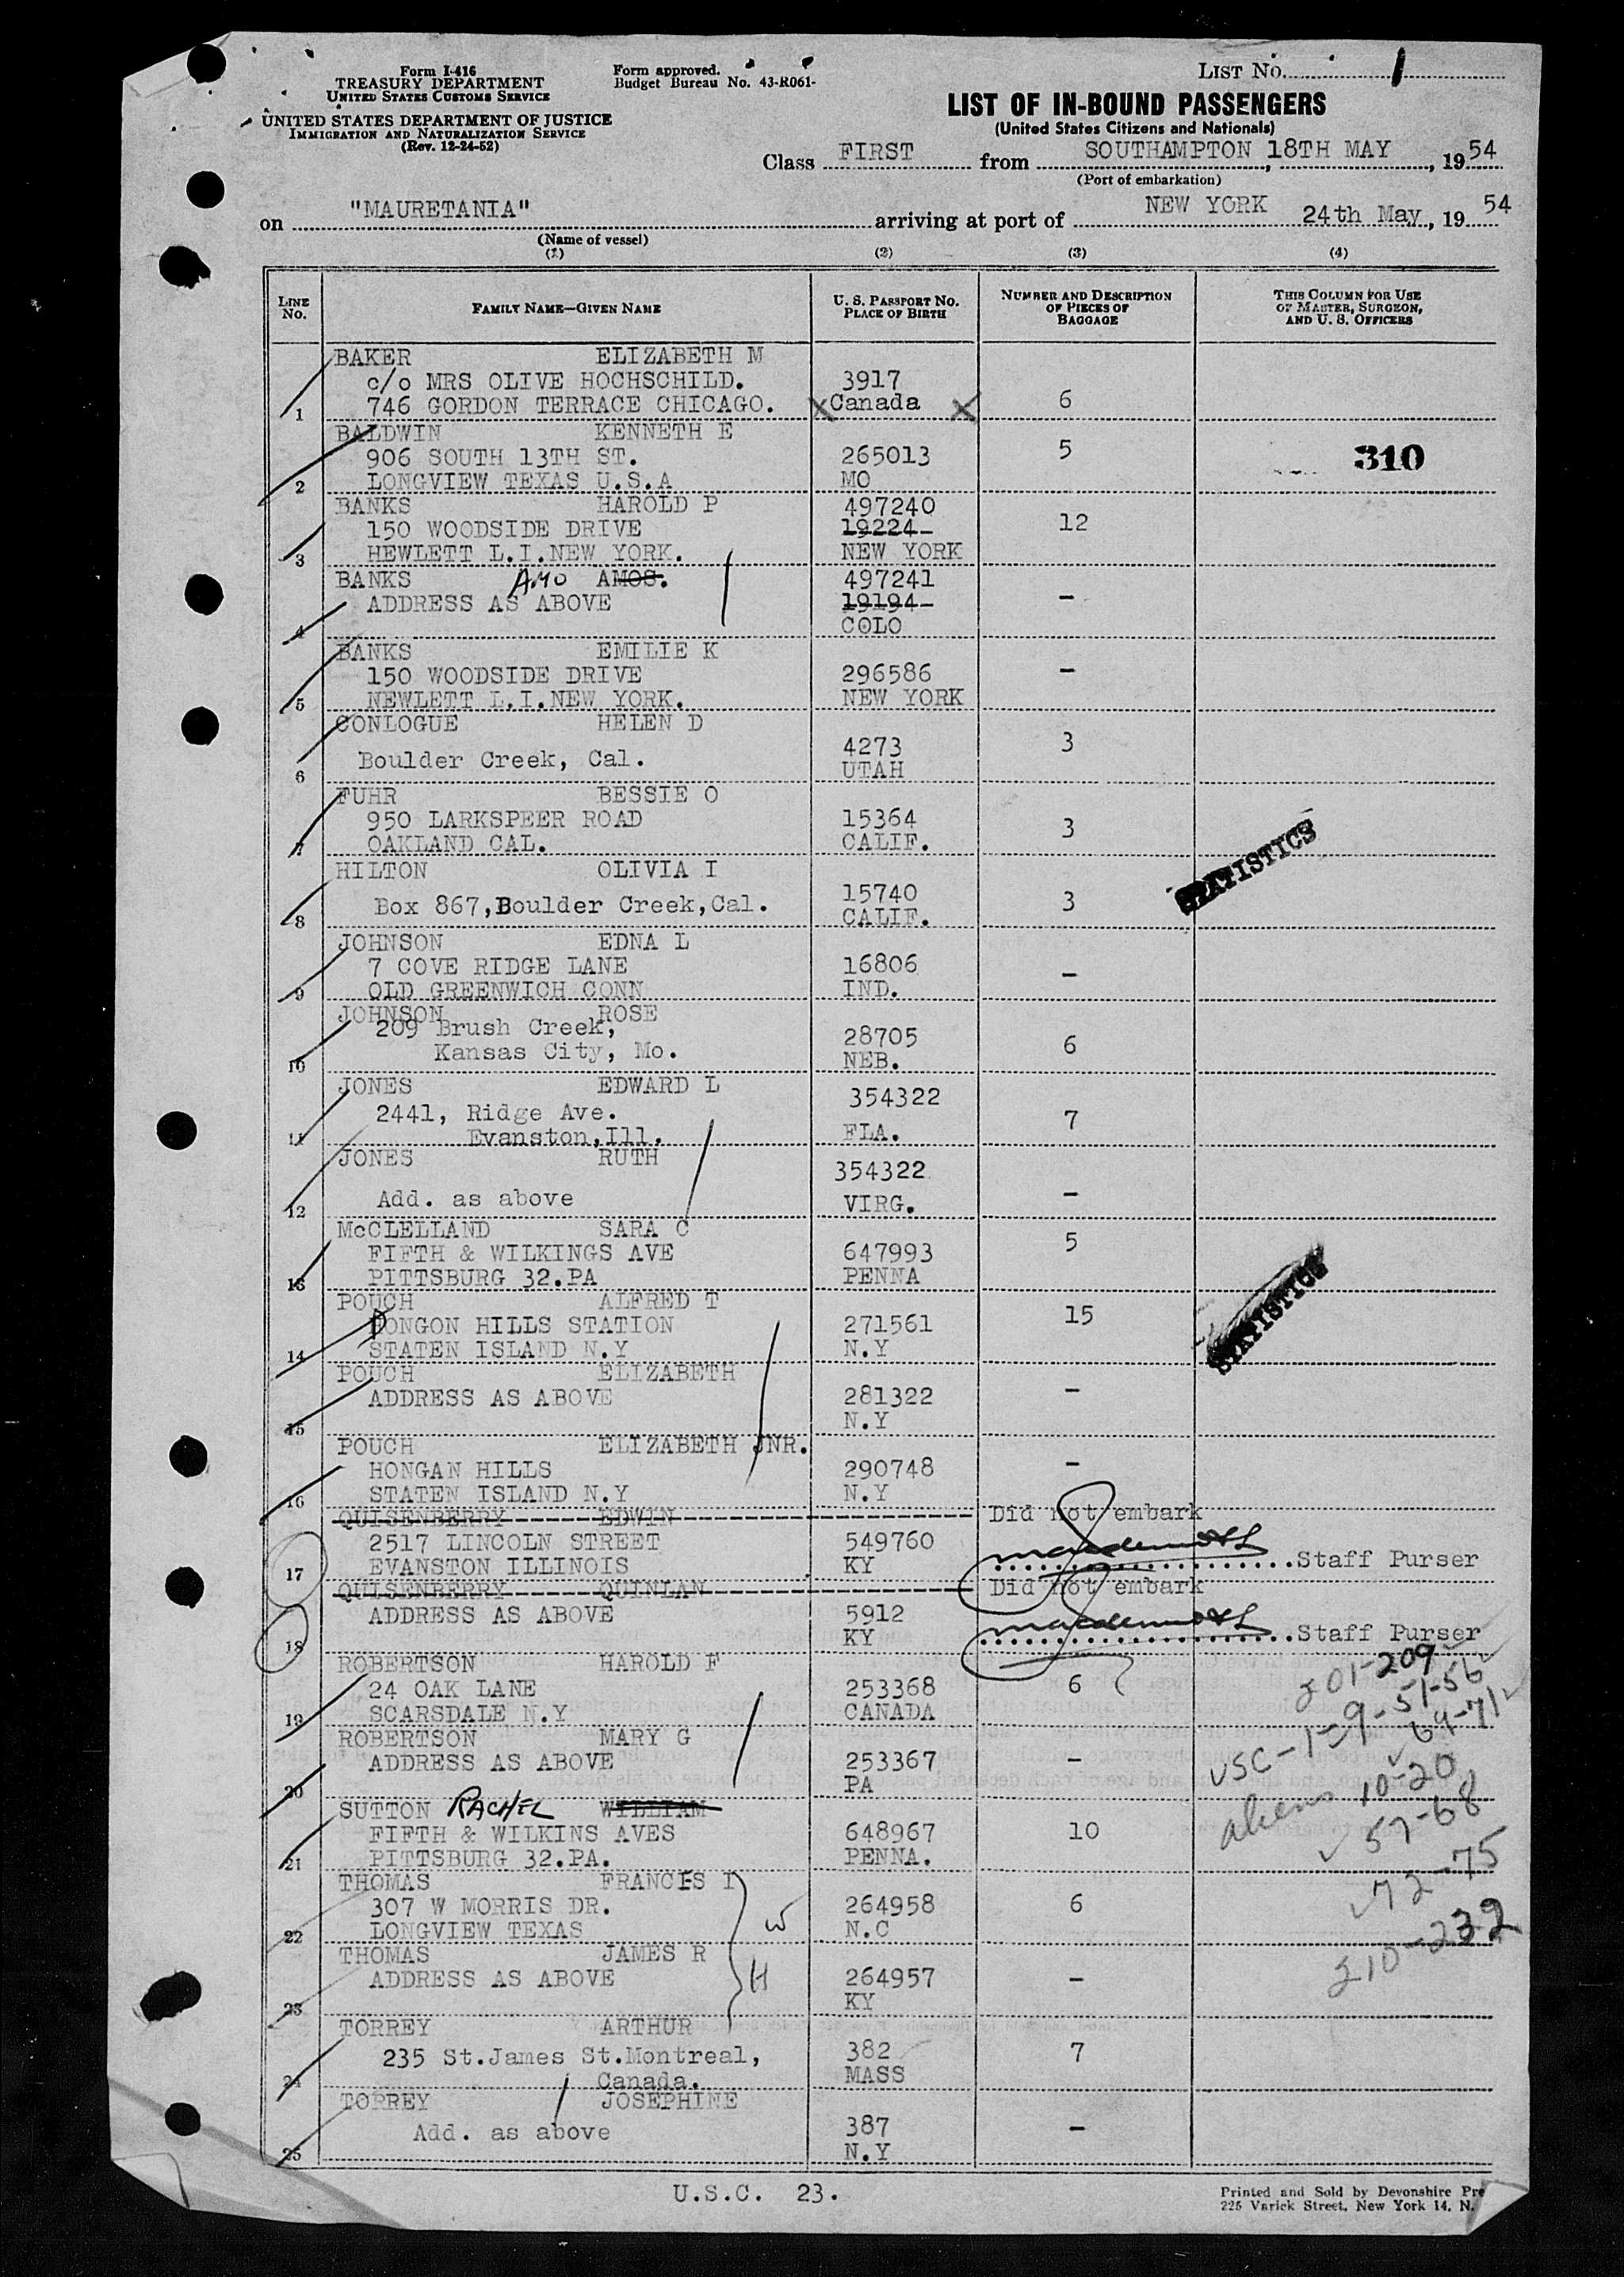 Form I-416
TREASURY DEPARTMENT
UNITED STATES CUSTOMS SERVICE
UNITED STATES DEPARTMENT OF JUSTICE
IMMIGRATION AND NATURALIZATION SERVICE
(Rev. 12-24-52)
Form approved.
Budget Bureau No. 43-R061-
LIST NO. 1
LIST OF IN-BOUND PASSENGERS
(United States Citizens and Nationals)
Class FIRST from SOUTHAMPTON 18TH MAY, 1954
(Port of embarkation)
on "MAURETANIA" arriving at port of NEW YORK 24th May, 1954
(Name of vessel)
(1) (2) (3) (4)
LINE NO. FAMILY NAME—GIVEN NAME U. S. PASSPORT NO. PLACE OF BIRTH NUMBER AND DESCRIPTION OF PIECES OF BAGGAGE THIS COLUMN FOR USE OF MASTER, SURGEON, AND U. S. OFFICERS
BAKER ELIZABETH M
c/o MRS OLIVE HOCHSCHILD. 3917
1 746 GORDON TERRACE CHICAGO. XCanada X 6
BALDWIN KENNETH E
906 SOUTH 13TH ST. 265013 5 310
2 LONGVIEW TEXAS U.S.A MO
BANKS HAROLD P 497240
150 WOODSIDE DRIVE 19224- 12
3 HEWLETT L.I.NEW YORK. NEW YORK
BANKS AMO AMOS. 497241
ADDRESS AS ABOVE 19194- -
4 COLO
BANKS EMILIE K
150 WOODSIDE DRIVE 296586 -
5 NEWLETT L.I.NEW YORK. NEW YORK
CONLOGUE HELEN D
Boulder Creek, Cal. 4273 3
6 UTAH
FUHR BESSIE O
950 LARKSPEER ROAD 15364 3
7 OAKLAND CAL. CALIF.
STATISTICS
HILTON OLIVIA I
Box 867,Boulder Creek,Cal. 15740 3
8 CALIF.
JOHNSON EDNA L
7 COVE RIDGE LANE 16806 -
9 OLD GREENWICH CONN IND.
JOHNSON ROSE
209 Brush Creek, 28705 6
10 Kansas City, Mo. NEB.
JONES EDWARD L
2441, Ridge Ave. 354322 7
11 Evanston,Ill. FLA.
JONES RUTH
354322 -
12 Add. as above VIRG.
McCLELLAND SARA C
FIFTH & WILKINGS AVE 647993 5
13 PITTSBURG 32.PA PENNA
STATISTICS
POUCH ALFRED T
DONGON HILLS STATION 271561 15
14 STATEN ISLAND N.Y N.Y
POUCH ELIZABETH
ADDRESS AS ABOVE 281322 -
15 N.Y
POUCH ELIZABETH JNR.
HONGAN HILLS 290748 -
16 STATEN ISLAND N.Y N.Y
QUISENBERRY EDWIN Did not embark
2517 LINCOLN STREET 549760
17 EVANSTON ILLINOIS KY Staff Purser
QUISENBERRY QUINLAN Did not embark
ADDRESS AS ABOVE 5912
18 KY Staff Purser
ROBERTSON HAROLD F
24 OAK LANE 253368 6
19 SCARSDALE N.Y CANADA
ROBERTSON MARY G
ADDRESS AS ABOVE 253367 -
20 PA
SUTTON RACHEL WILLIAM
FIFTH & WILKINS AVES 648967 10
21 PITTSBURG 32.PA. PENNA.
THOMAS FRANCIS I
307 W MORRIS DR. W 264958 6
22 LONGVIEW TEXAS N.C
THOMAS JAMES R
ADDRESS AS ABOVE H 264957 -
23 KY
TORREY ARTHUR
235 St.James St.Montreal, 382 7
24 Canada. MASS
TORREY JOSEPHINE
Add. as above 387 -
25 N.Y
201-209
USC-1-9-51-56
69-71
aliens 10-20
57-68
72-75
210-232
U.S.C. 23.
Printed and Sold by Devonshire Pre
225 Varick Street, New York 14, N.